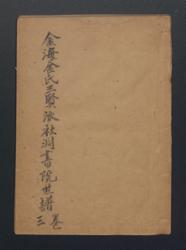 金海金氏三賢派社洞書院世譜
卷三